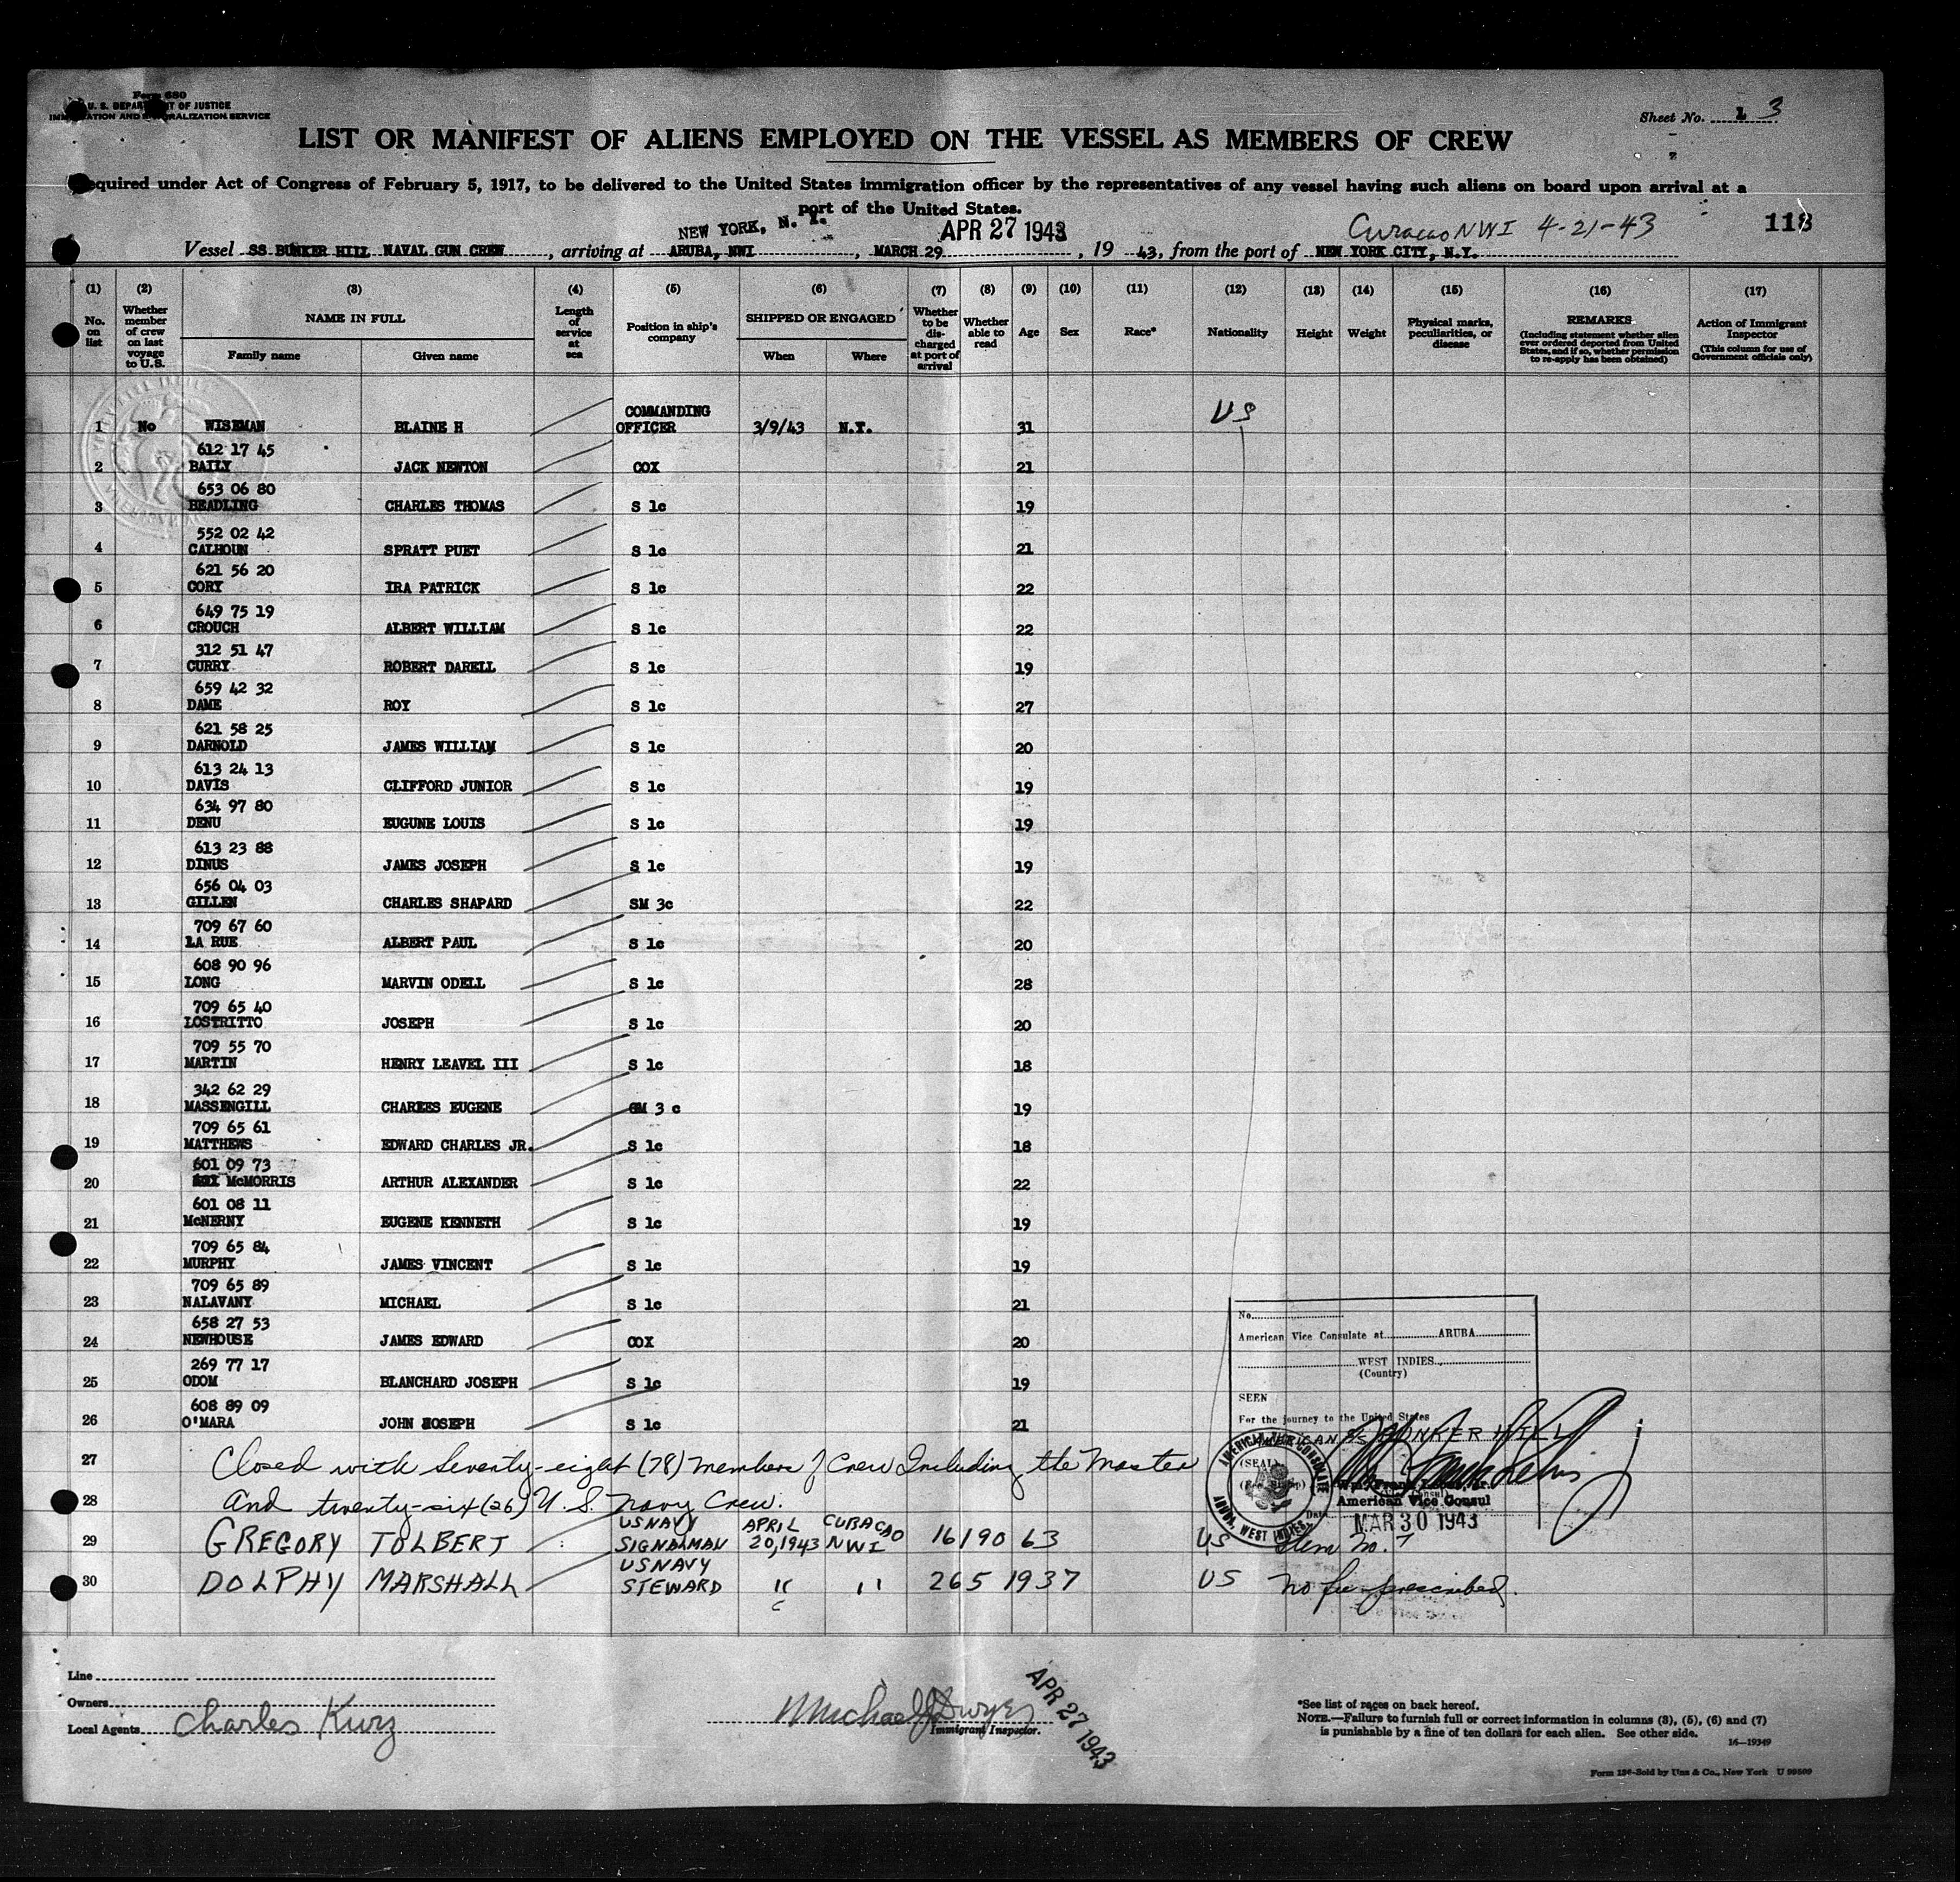 Form 680
U. S. DEPARTMENT OF JUSTICE
IMMIGRATION AND NATURALIZATION SERVICE
Sheet No. 1 3
LIST OR MANIFEST OF ALIENS EMPLOYED ON THE VESSEL AS MEMBERS OF CREW
Required under Act of Congress of February 5, 1917, to be delivered to the United States immigration officer by the representatives of any vessel having such aliens on board upon arrival at a
port of the United States.
NEW YORK, N. Y. APR 27 1943 Curacao NWI 4-21-43 118
Vessel SS BUNKER HILL NAVAL GUN CREW, arriving at ARUBA, NWI, MARCH 29, 19 43, from the port of NEW YORK CITY, N.Y.
(1) No. on list
(2) Whether member of crew on last voyage to U.S.
(3) NAME IN FULL Family name Given name
(4) Length of service at sea
(5) Position in ship's company
(6) SHIPPED OR ENGAGED When Where
(7) Whether to be discharged at port of arrival
(8) Whether able to read
(9) Age
(10) Sex
(11) Race*
(12) Nationality
(13) Height
(14) Weight
(15) Physical marks, peculiarities, or disease
(16) REMARKS (Including statement whether alien ever ordered deported from United States, and if so, whether permission to re-apply has been obtained)
(17) Action of Immigrant Inspector (This column for use of Government officials only)
1 No WISEMAN BLAINE H COMMANDING OFFICER 3/9/43 N.Y. 31 US
612 17 45
2 BAILY JACK NEWTON COX 21
653 06 80
3 BEADLING CHARLES THOMAS S 1c 19
552 02 42
4 CALHOUN SPRATT PUET S 1c 21
621 56 20
5 CORY IRA PATRICK S 1c 22
649 75 19
6 CROUCH ALBERT WILLIAM S 1c 22
312 51 47
7 CURRY ROBERT DARELL S 1c 19
659 42 32
8 DAME ROY S 1c 27
621 58 25
9 DARNOLD JAMES WILLIAM S 1c 20
613 24 13
10 DAVIS CLIFFORD JUNIOR S 1c 19
634 97 80
11 DENU EUGUNE LOUIS S 1c 19
613 23 88
12 DINUS JAMES JOSEPH S 1c 19
656 04 03
13 GILLEN CHARLES SHAPARD SM 3c 22
709 67 60
14 LA RUE ALBERT PAUL S 1c 20
608 90 96
15 LONG MARVIN ODELL S 1c 28
709 65 40
16 LOSTRITTO JOSEPH S 1c 20
709 55 70
17 MARTIN HENRY LEAVEL III S 1c 18
342 62 29
18 MASSENGILL CHARLES EUGENE GM 3 c 19
709 65 61
19 MATTHEWS EDWARD CHARLES JR. S 1c 18
601 09 73
20 McMORRIS ARTHUR ALEXANDER S 1c 22
601 08 11
21 McNERNY EUGENE KENNETH S 1c 19
709 65 84
22 MURPHY JAMES VINCENT S 1c 19
709 65 89
23 NALAVANY MICHAEL S 1c 21
658 27 53
24 NEWHOUSE JAMES EDWARD COX 20
269 77 17
25 ODOM BLANCHARD JOSEPH S 1c 19
608 89 09
26 O'MARA JOHN JOSEPH S 1c 21
27 Closed with Seventy-eight (78) members of Crew Including the Master
28 And twenty-six (26) U. S. Navy Crew.
29 GREGORY TOLBERT US NAVY SIGNALMAN APRIL 20, 1943 CURACAO NWI 16190 63 US Item No. 7
30 DOLPHY MARSHALL US NAVY STEWARD " " 265 1937 US No fee prescribed.
No.
American Vice Consulate at ARUBA
WEST INDIES
(Country)
SEEN
For the journey to the United States
AMERICAN SS BUNKER HILL
(SEAL)
AMERICAN VICE CONSULATE
ARUBA, WEST INDIES
American Vice Consul
Date MAR 30 1943
Line
Owners
Local Agents Charles Kurz
Michael J Dwyer
Immigrant Inspector.
APR 27 1943
*See list of races on back hereof.
NOTE.—Failure to furnish full or correct information in columns (3), (5), (6) and (7)
is punishable by a fine of ten dollars for each alien. See other side.
16—19349
Form 136-Sold by Unz & Co., New York U 99509